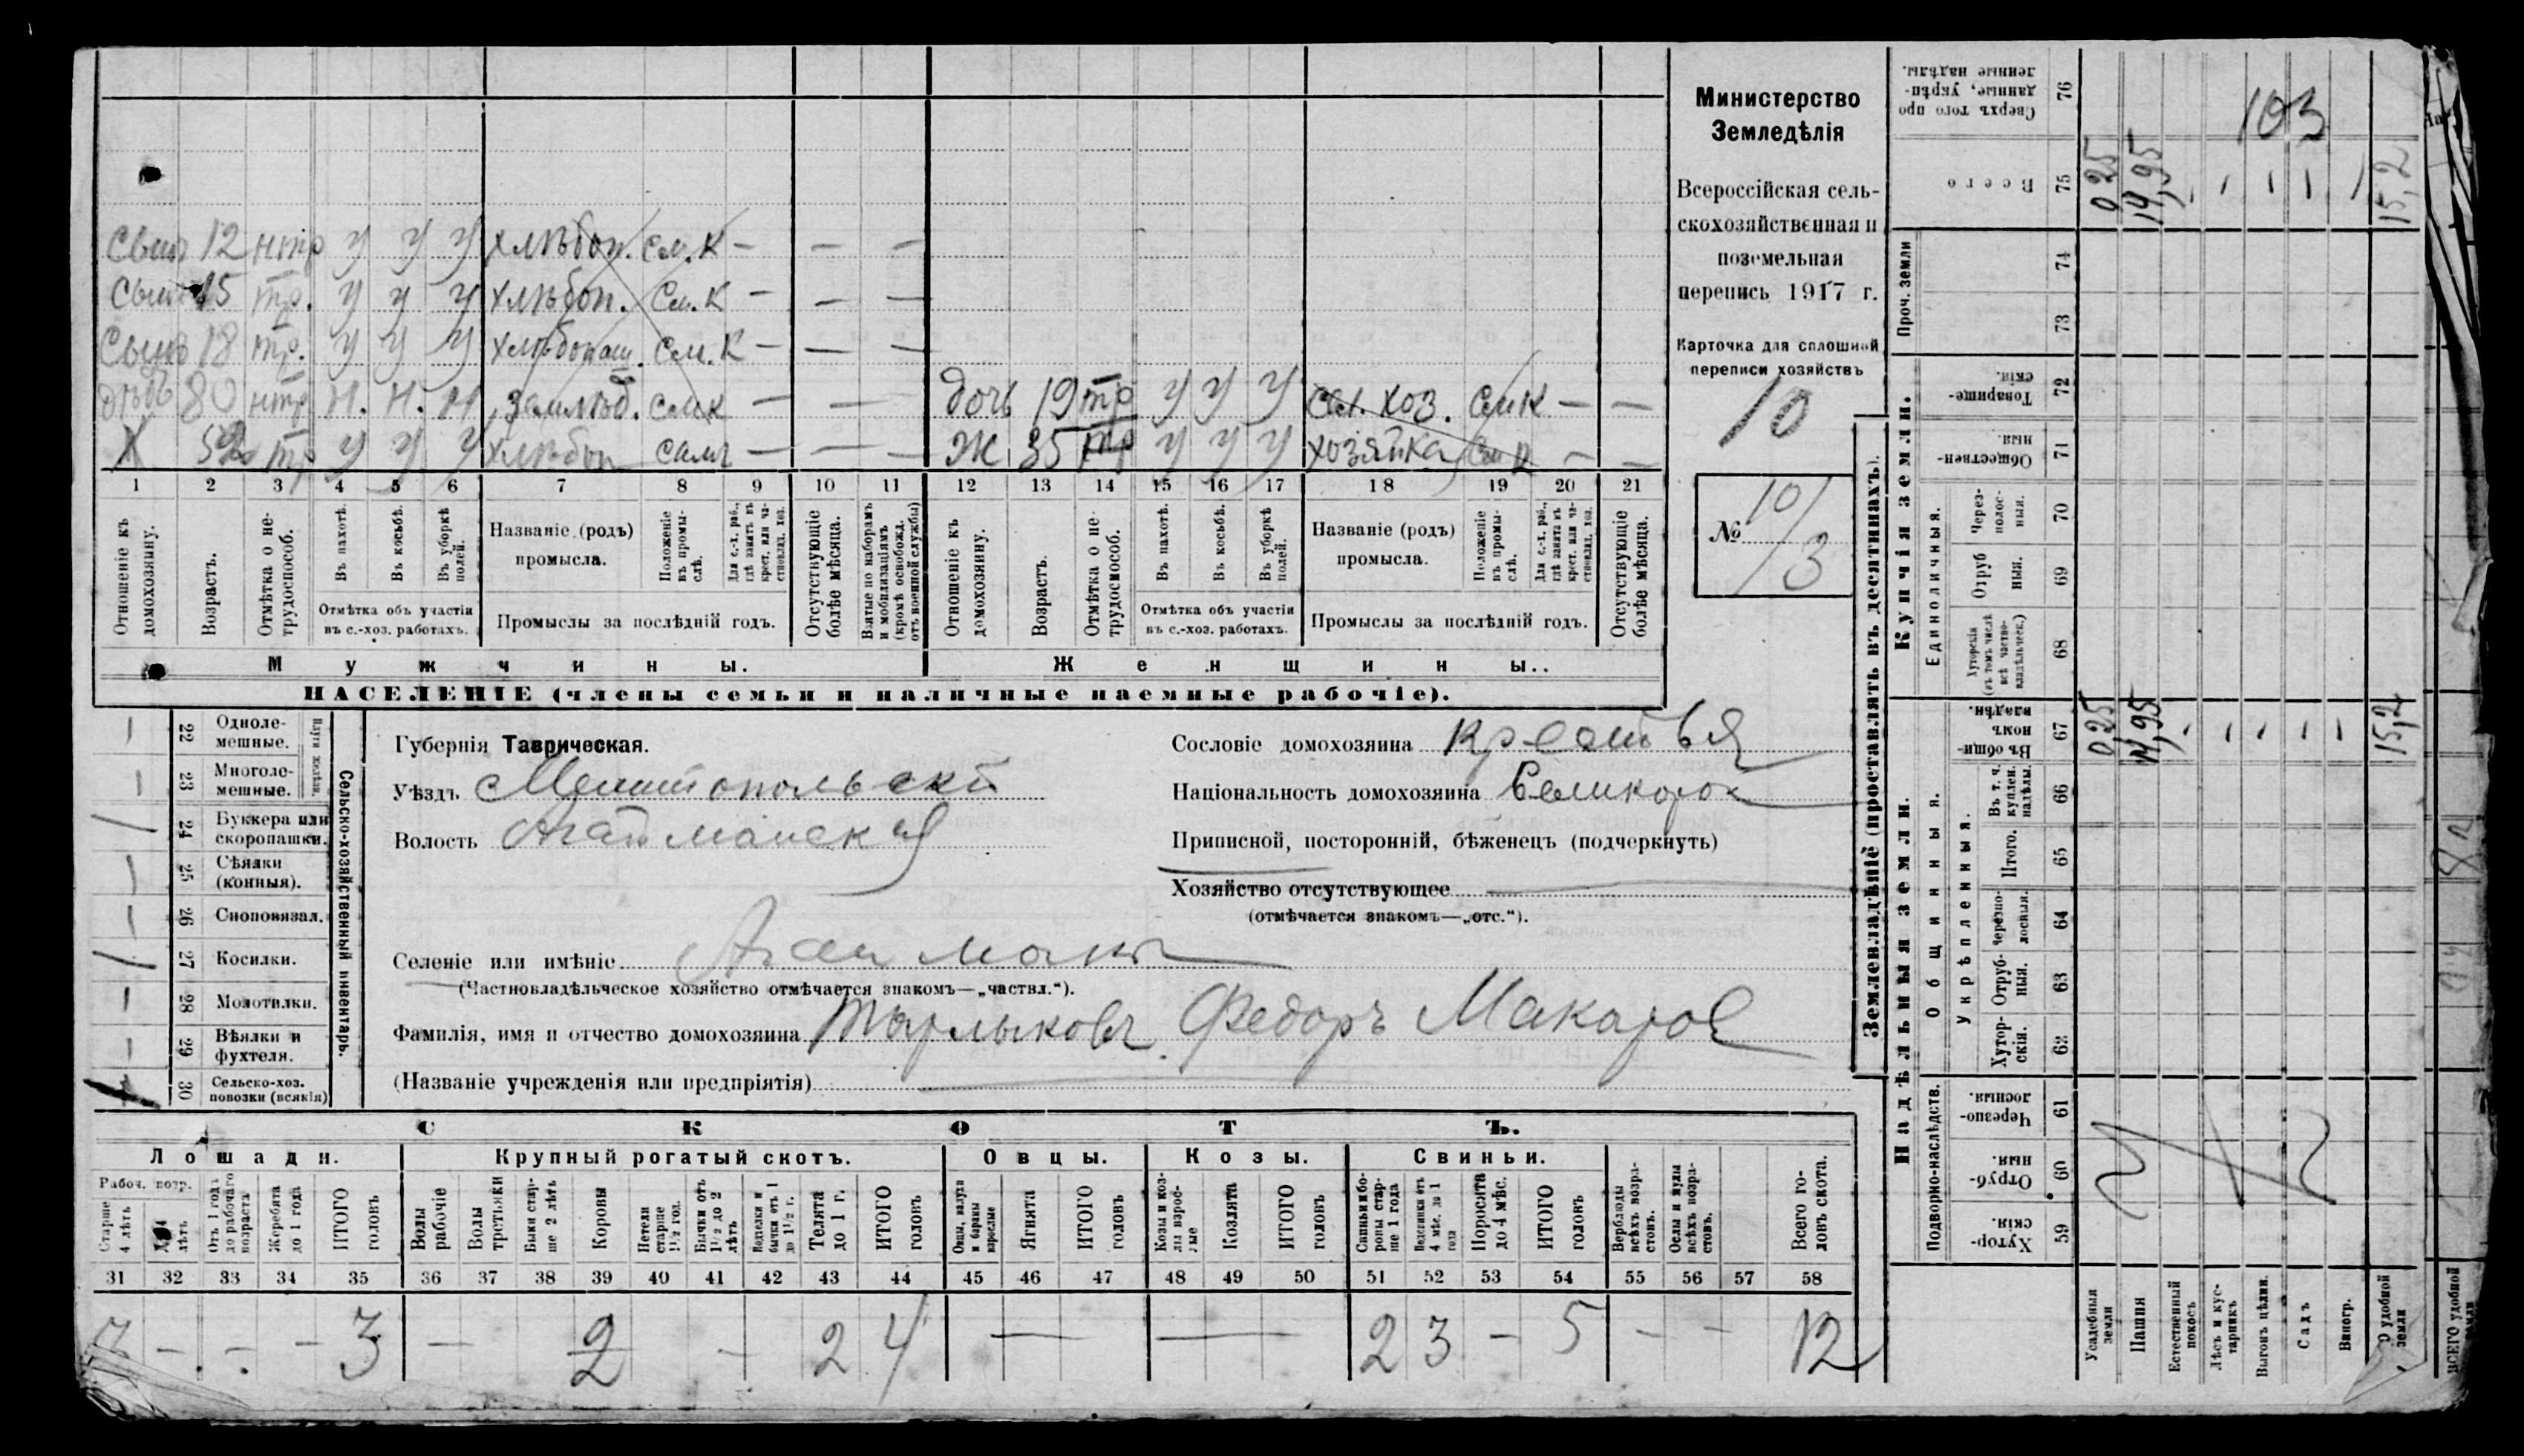 Сынъ 12 нтр у у у хлѣбоп. см.к — — —
Сынъ 15 тр. у у у хлѣбоп. См.к — — —
Сынъ 18 тр. у у у хлѣбопаш. см.к — — —
дѣдъ 80 нтр Н. Н. Н земледѣ. см.к — — — дочь 19 тр у у у сел. хоз. см к — —
Х тр у у у хлѣбоп самъ — — — Ж 35 тр у у у хозяйка см к — —
1 2 3 4 5 6 7 8 9 10 11 12 13 14 15 16 17 18 19 20 21
Отношеніе къ домохозяину.
Возрастъ.
Отмѣтка о не-трудоспособ.
Въ пахотѣ.
Въ косьбѣ.
Въ уборкѣ полей.
Отмѣтка объ участіи
въ с.-хоз. работахъ.
Названіе (родъ)
промысла.
Положеніе въ промы-слѣ.
Для с.-х. раб., гдѣ занятъ въ крест. или ча-стновлад. хоз.
Промыслы за послѣдній годъ.
Отсутствующіе болѣе мѣсяца.
Взятые по наборамъ и мобилизаціямъ (кромѣ освобожд. отъ военной службы)
Отношеніе къ домохозяину.
Возрастъ.
Отмѣтка о не-трудоспособ.
Въ пахотѣ.
Въ косьбѣ.
Въ уборкѣ полей.
Отмѣтка объ участіи
въ с.-хоз. работахъ.
Названіе (родъ)
промысла.
Положеніе въ промы-слѣ.
Для с.-х. раб., гдѣ занятъ въ крест. или ча-стновлад. хоз.
Промыслы за послѣдній годъ.
Отсутствующіе болѣе мѣсяца.
Мужчины. Женщины..
НАСЕЛЕНІЕ (члены семьи и наличные наемные рабочіе).
Министерство
Земледѣлія
Всероссійская сель-
скохозяйственная и
поземельная
перепись 1917 г.
Карточка для сплошной
переписи хозяйствъ
10
№ 10/3
22 Одноле-мешные.
23 Многоле-мешные.
Плуги желѣзн.
24 Буккера или скоропашки.
25 Сѣялки (конныя).
26 Сноповязал.
27 Косилки.
28 Молотилки.
29 Вѣялки и фухтеля.
30 Сельско-хоз. повозки (всякія)
Сельско-хозяйственный инвентарь.
Губернія Таврическая.
Уѣздъ Мелитопольскій
Волость Агайманская
Селеніе или имѣніе Агайманъ
(Частновладѣльческое хозяйство отмѣчается знакомъ—„частвл.“).
Фамилія, имя и отчество домохозяина Тырлыковъ Федоръ Макаров
(Названіе учрежденія или предпріятія)
Сословіе домохозяина крестья
Національность домохозяина Великорос
Приписной, посторонній, бѣженецъ (подчеркнуть)
Хозяйство отсутствующее
(отмѣчается знакомъ—„отс.“).
СКОТЪ.
Лошади. Крупный рогатый скотъ. Овцы. Козы. Свиньи.
Рабоч. возр.
Старше 4 лѣтъ
До 4 лѣтъ
Отъ 1 года до рабочаго возраста
Жеребята до 1 года
ИТОГО головъ
Волы рабочіе
Волы третьяки
Быки стар-ше 2 лѣтъ
Коровы
Нетели старше 1½ год.
Бычки отъ 1½ до 2 лѣтъ
Подтелки и бычки отъ 1 до 1½ г.
Телята до 1 г.
ИТОГО головъ
Овцы, валухи и бараны взрослые
Ягнята
ИТОГО головъ
Козы и коз-лы взрос-лые
Козлята
ИТОГО головъ
Свиньи и бо-ровы стар-ше 1 года
Подсвинки отъ 4 мѣс. до 1 года
Поросята до 4 мѣс.
ИТОГО головъ
Верблюды всѣхъ возра-стовъ.
Ослы и мулы всѣхъ возра-стовъ.
Всего го-ловъ скота.
31 32 33 34 35 36 37 38 39 40 41 42 43 44 45 46 47 48 49 50 51 52 53 54 55 56 57 58
— — — 3 — 2 — 2 4 — — 2 3 — 5 — — 12
Землевладѣніе (проставлять въ десятинахъ).
Надѣльныя земли. Купчія земли. Проч. земли
Подворно-наслѣдств.
Общинныя.
Укрѣпленныя.
Единоличныя.
76 Сверхъ того про-данные, укрѣп-ленные надѣлы.
75 Всего
74
73
72 Товарище-скія.
71 Обществен-ныя.
70 Через-полос-ныя.
69 Отруб ныя.
68 Хуторскія (въ томъ числѣ всѣ частно-владѣльческ.)
67 Въ общи-номъ владѣн.
66 Въ т. ч. куплен. надѣлы.
65 Итого.
64 Черезпо-лосныя.
63 Отруб-ныя.
62 Хутор-скія.
61 Черезпо-лосныя.
60 Отруб-ныя.
59 Хутор-скія.
103
0,25 14,95 15,2
0,25 14,95 15,2
Усадебныя земли
Пашня
Естественный покосъ
Лѣсъ и кус-тарникъ
Выгонъ цѣлин.
Садъ
Виногр.
удобной земли
ВСЕГО удобной земли